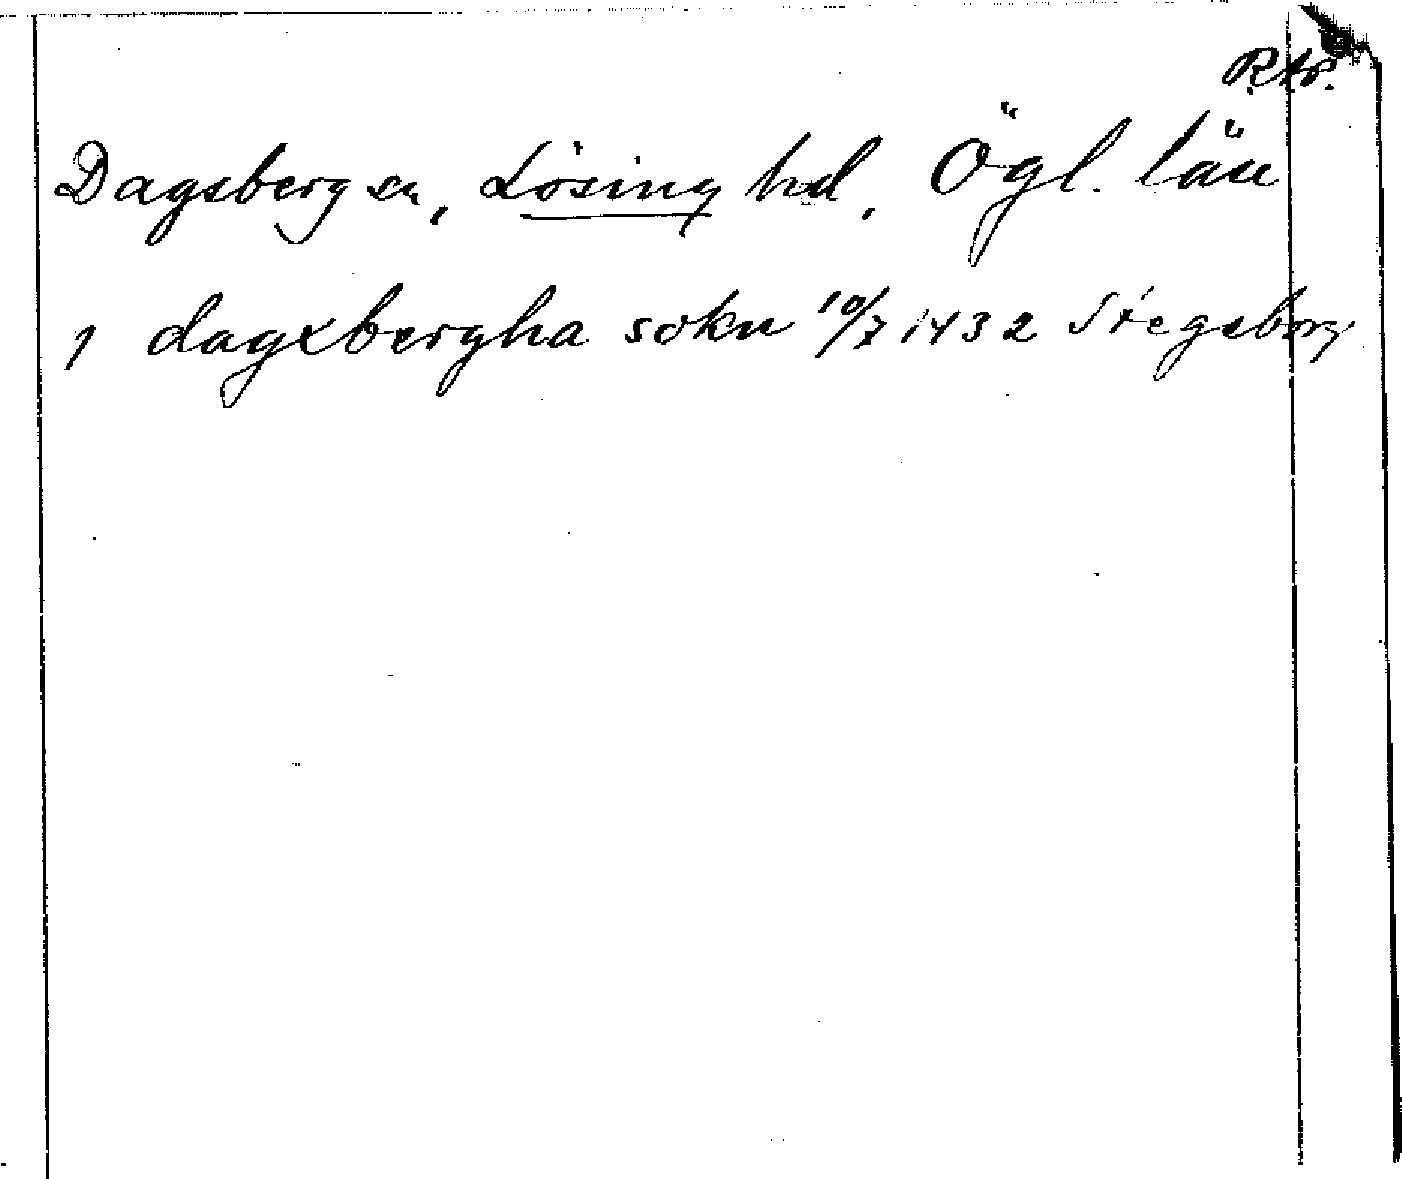 Rtp.
Dagsberg sn, Lösing hd, Ögl. län
J dagxbergha sokn 10/7 1432 Stegeborg